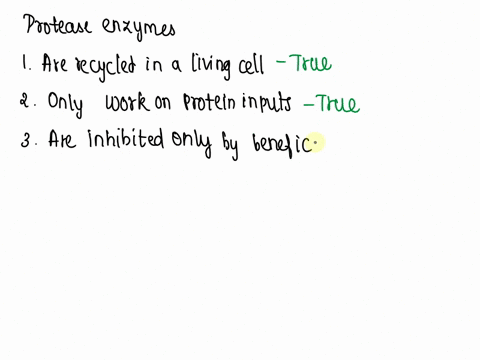 Protease enzymes
1. Are recycled in a living cell - True
2. Only work on protein inputs - True
3. Are inhibited only by benefic